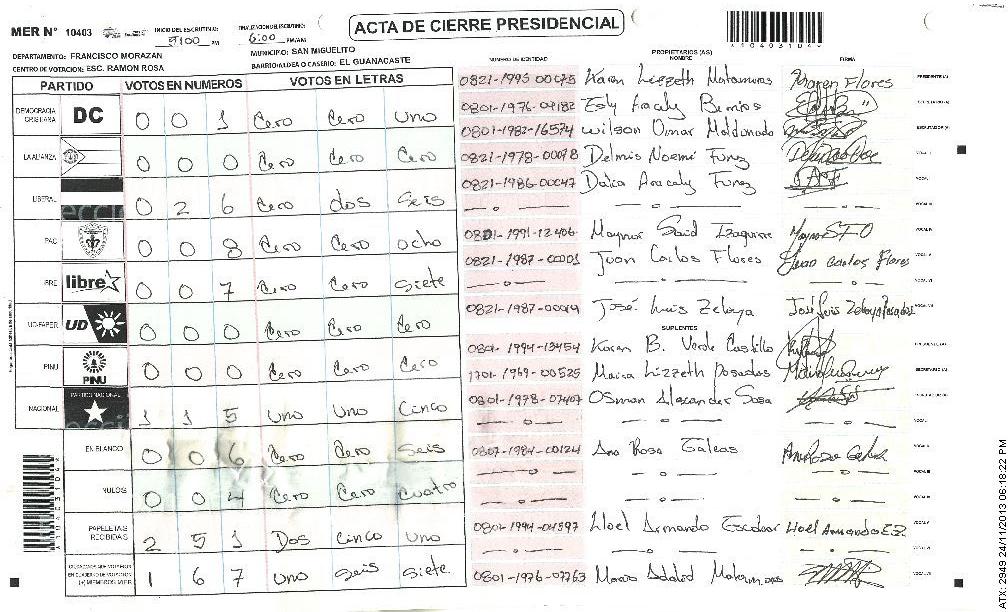 MER N° 10403
INICIO DEL ESCRUTINIO: 5:00 PM
FINALIZACION DEL ESCRUTINIO: 6:00 PM/AM
ACTA DE CIERRE PRESIDENCIAL
DEPARTAMENTO: FRANCISCO MORAZAN
MUNICIPIO: SAN MIGUELITO
CENTRO DE VOTACION: ESC. RAMON ROSA
BARRIO/ALDEA O CASERIO: EL GUANACASTE
PARTIDO VOTOS EN NUMEROS VOTOS EN LETRAS
DEMOCRACIA CRISTIANA DC 0 0 1 Cero Cero Uno
LA ALIANZA 0 0 0 Cero Cero Cero
LIBERAL 0 2 6 Cero dos Seis
PAC 0 0 8 Cero Cero Ocho
libre 0 0 7 Cero Cero Siete
UD-FAPER UD 0 0 0 Cero Cero Cero
PINU PINU 0 0 0 Cero Cero Cero
NACIONAL PARTIDO NACIONAL 1 1 5 Uno Uno Cinco
EN BLANCO 0 0 6 Cero Cero Seis
NULOS 0 0 4 Cero Cero Cuatro
PAPELETAS RECIBIDAS 2 5 1 Dos Cinco Uno
CIUDADANOS QUE VOTARON
EN CUADERNO DE VOTACION
(+) MIEMBROS MER 1 6 7 Uno Seis Siete
NUMERO DE IDENTIDAD PROPIETARIOS (AS) NOMBRE FIRMA
Karen Lizzeth Matamoros Karen Flores PRESIDENTE (A)
Esly Aracaly SECRETARIO (A)
0801-1982-16574 Wilson Omar Maldonado ESCRUTADOR (A)
0821-1978-00098 Delmis Noemi Funez VOCAL I
0821-1986-00047 Dalia Aracaly Funez
1991-12406 Maynor Said Izaguirre
0821-1987-00001 Juan Carlos Flores Juan Carlos Flores
0821-1987-00019 José Luis Zelaya José Luis Zelaya
SUPLENTES
0801-1994-13454 Karen B. Verde Castillo
1701-1969-00525 Maira Lizzeth Posadas
0801-1978-07407 Osman Alexander Sosa
0807-1984-00124 Ana Rosa Galeas
0801-1994-04597 Lloel Armando Escobar
0801-1976-07763 Mario Adalid
ATX: 2949 24/11/2013 06:18:22 PM